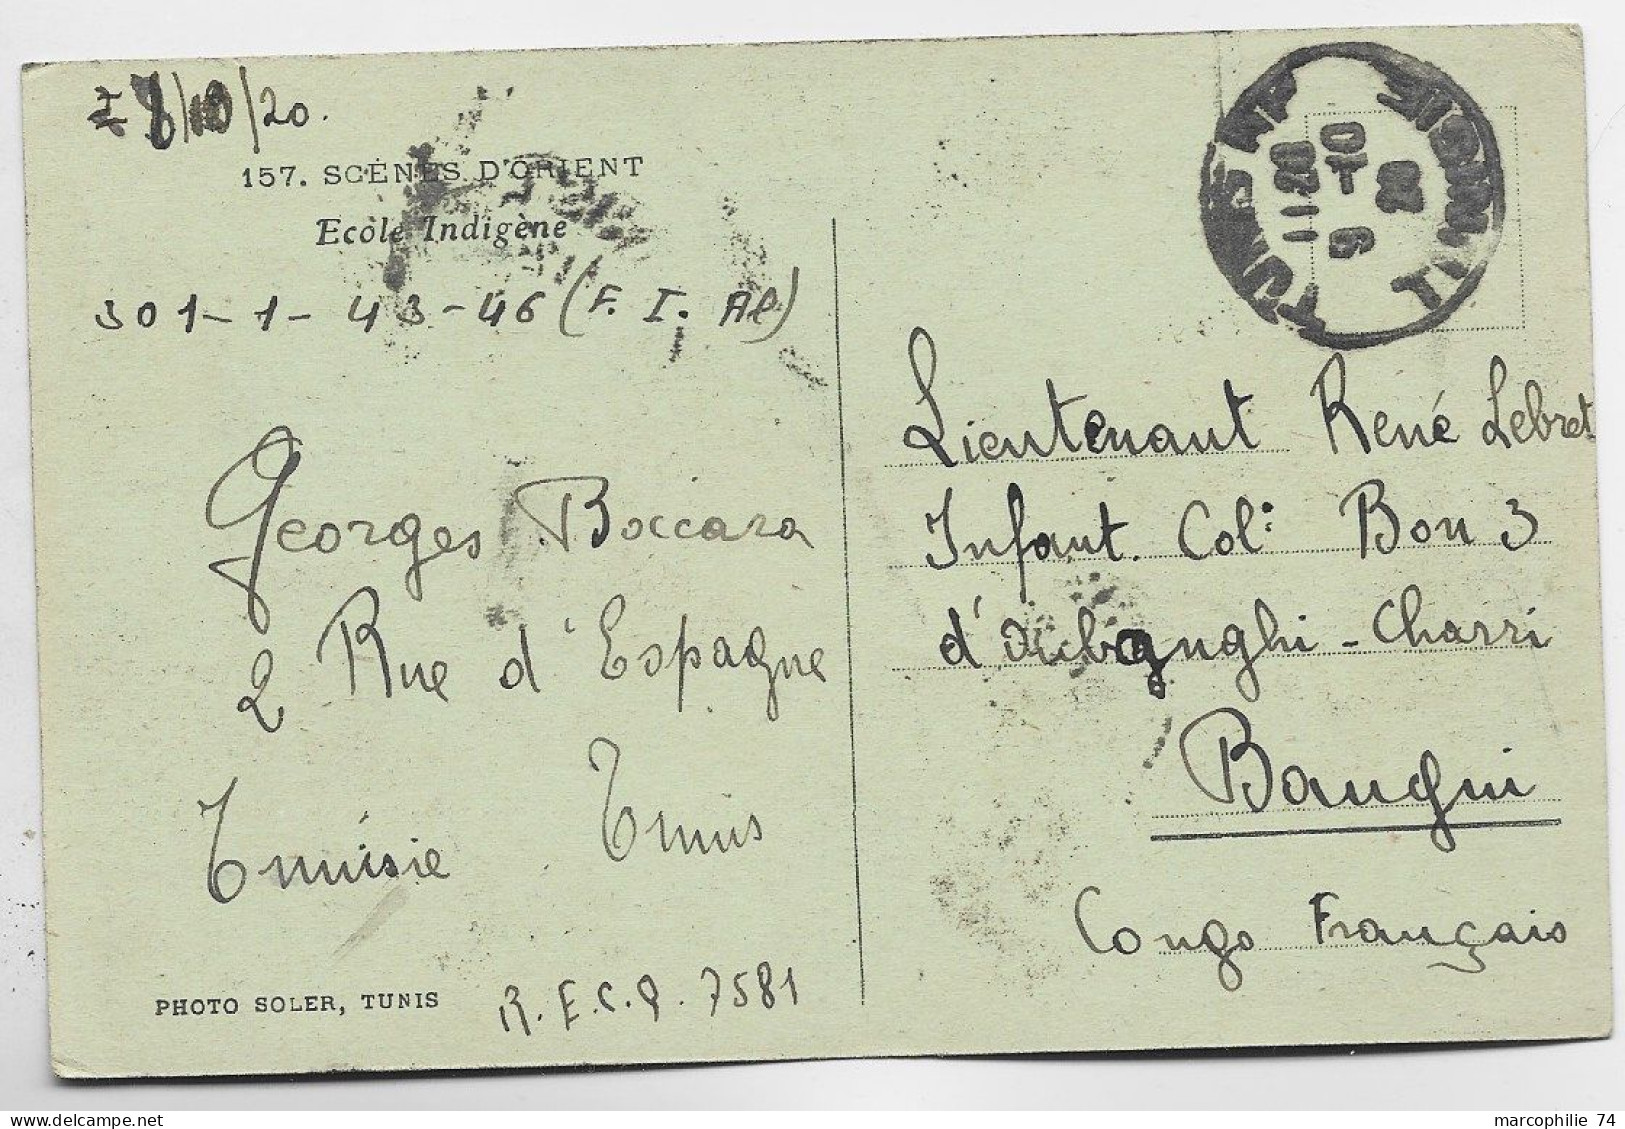 8/10/20.
157. SCÈNES D'ORIENT
Ecole Indigène
301-1-43-46 (F. I. Al)
Georges Boccara
2 Rue d'Espagne
Tunis
Tunisie
PHOTO SOLER, TUNIS
R.E.C.Q. 7581
TUNIS RP
11-20
9 -10
20
Lieutenant René Lebret
Infant. Col: Bon 3
d'Oubanghi-Charri
Bangui
Congo Français
marcophilie 74